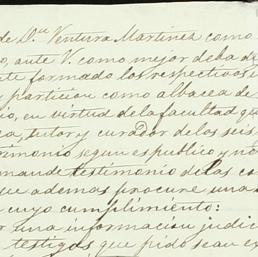 de D.ⁿ Ventura Martinez como
o, ante V. como mejor deba d
formado los respectivos i
y particion como albacea de
io, en virtud de la facultad qu
ca, tutor y curador de los seis
rimonio segun es publico y no
mande testimonio de las co
que ademas procure una
cuyo cumplimiento:
r una informacion judic
testigos que pido sean ex